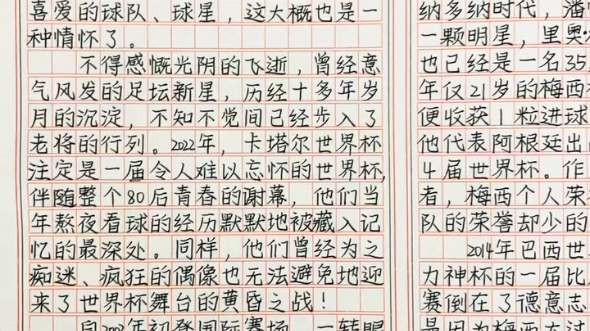 喜爱的球队、球星，这大概也是一
种情怀了。
不得感慨光阴的飞逝，曾经意
气风发的足坛新星，历经十多年岁
月的沉淀，不知不觉间已经步入了
老将的行列。2022年，卡塔尔世界杯
注定是一届令人难以忘怀的世界杯，
伴随整个80后青春的谢幕，他们当
年熬夜看球的经历默默地被藏入记
忆的最深处。同样，他们曾经为之
痴迷、疯狂的偶像也无法避免地迎
来了世界杯舞台的黄昏之战！
年初登国际赛场，一转眼
纳多纳时代，潘
一颗明星，里奥
也已经是一名35
年仅21岁的梅西
便收获1粒进球
他代表阿根廷出
4届世界杯。作
者，梅西个人荣
队的荣誉却少的
2014年巴西世
力神杯的一届比
赛倒在了德意志
是因为梅西大过